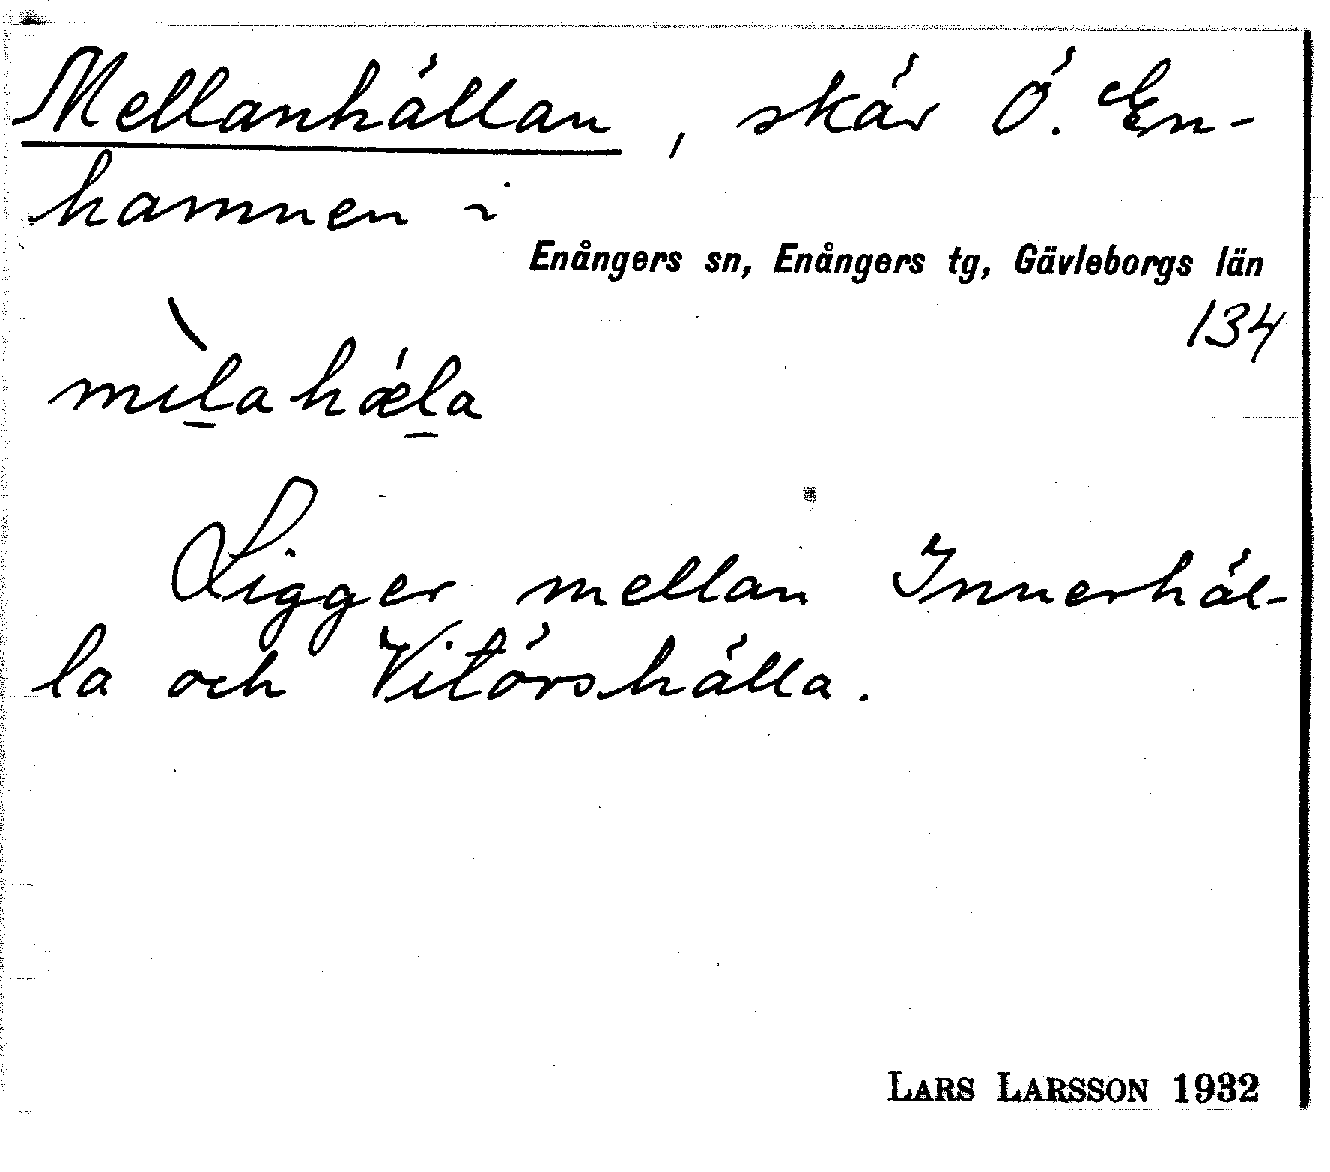 Mellanhällan, skär Ö. En-
hamnen i
Enångers sn, Enångers tg, Gävleborgs län
134
mìlahǽla
Ligger mellan Innerhäl-
la och Vitörshälla.
LARS LARSSON 1932